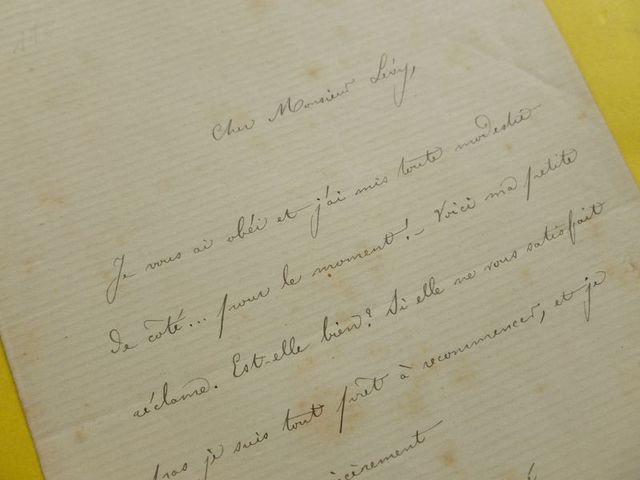 Cher Monsieur Lévy,
Je vous ai obéi et j'ai mis toute modestie
de côté... pour le moment! - Voici ma petite
réclame. Est-elle bien? Si elle ne vous satisfait
pas je suis tout prêt à recommencer, et je